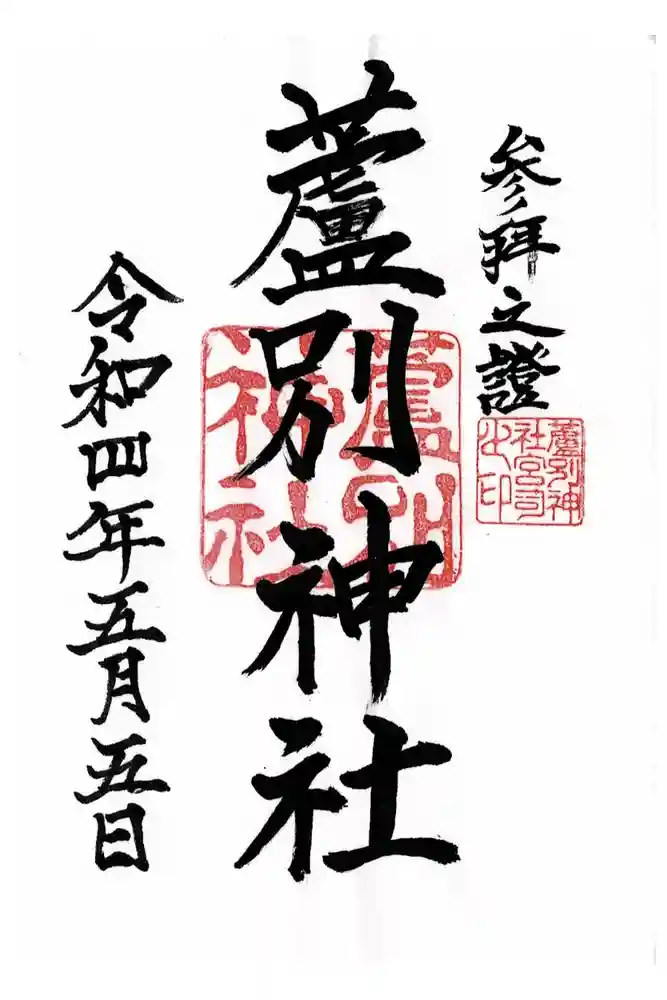 参拜之證
蘆別神
社宮司
之印
蘆別神社
蘆別
神社
令和四年五月五日